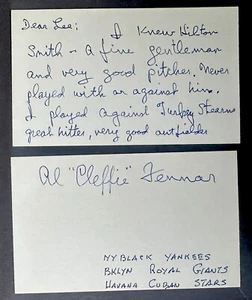 Dear Lee: I Knew Hilton
Smith - a fine gentleman
and very good pitcher. Never
played with or against him.
I played against Turkey Stearns
great hitter, very good outfielder
Al "Cleffie" Fennar
NY BLACK YANKEES
BKLYN ROYAL GIANTS
HAVANA CUBAN STARS